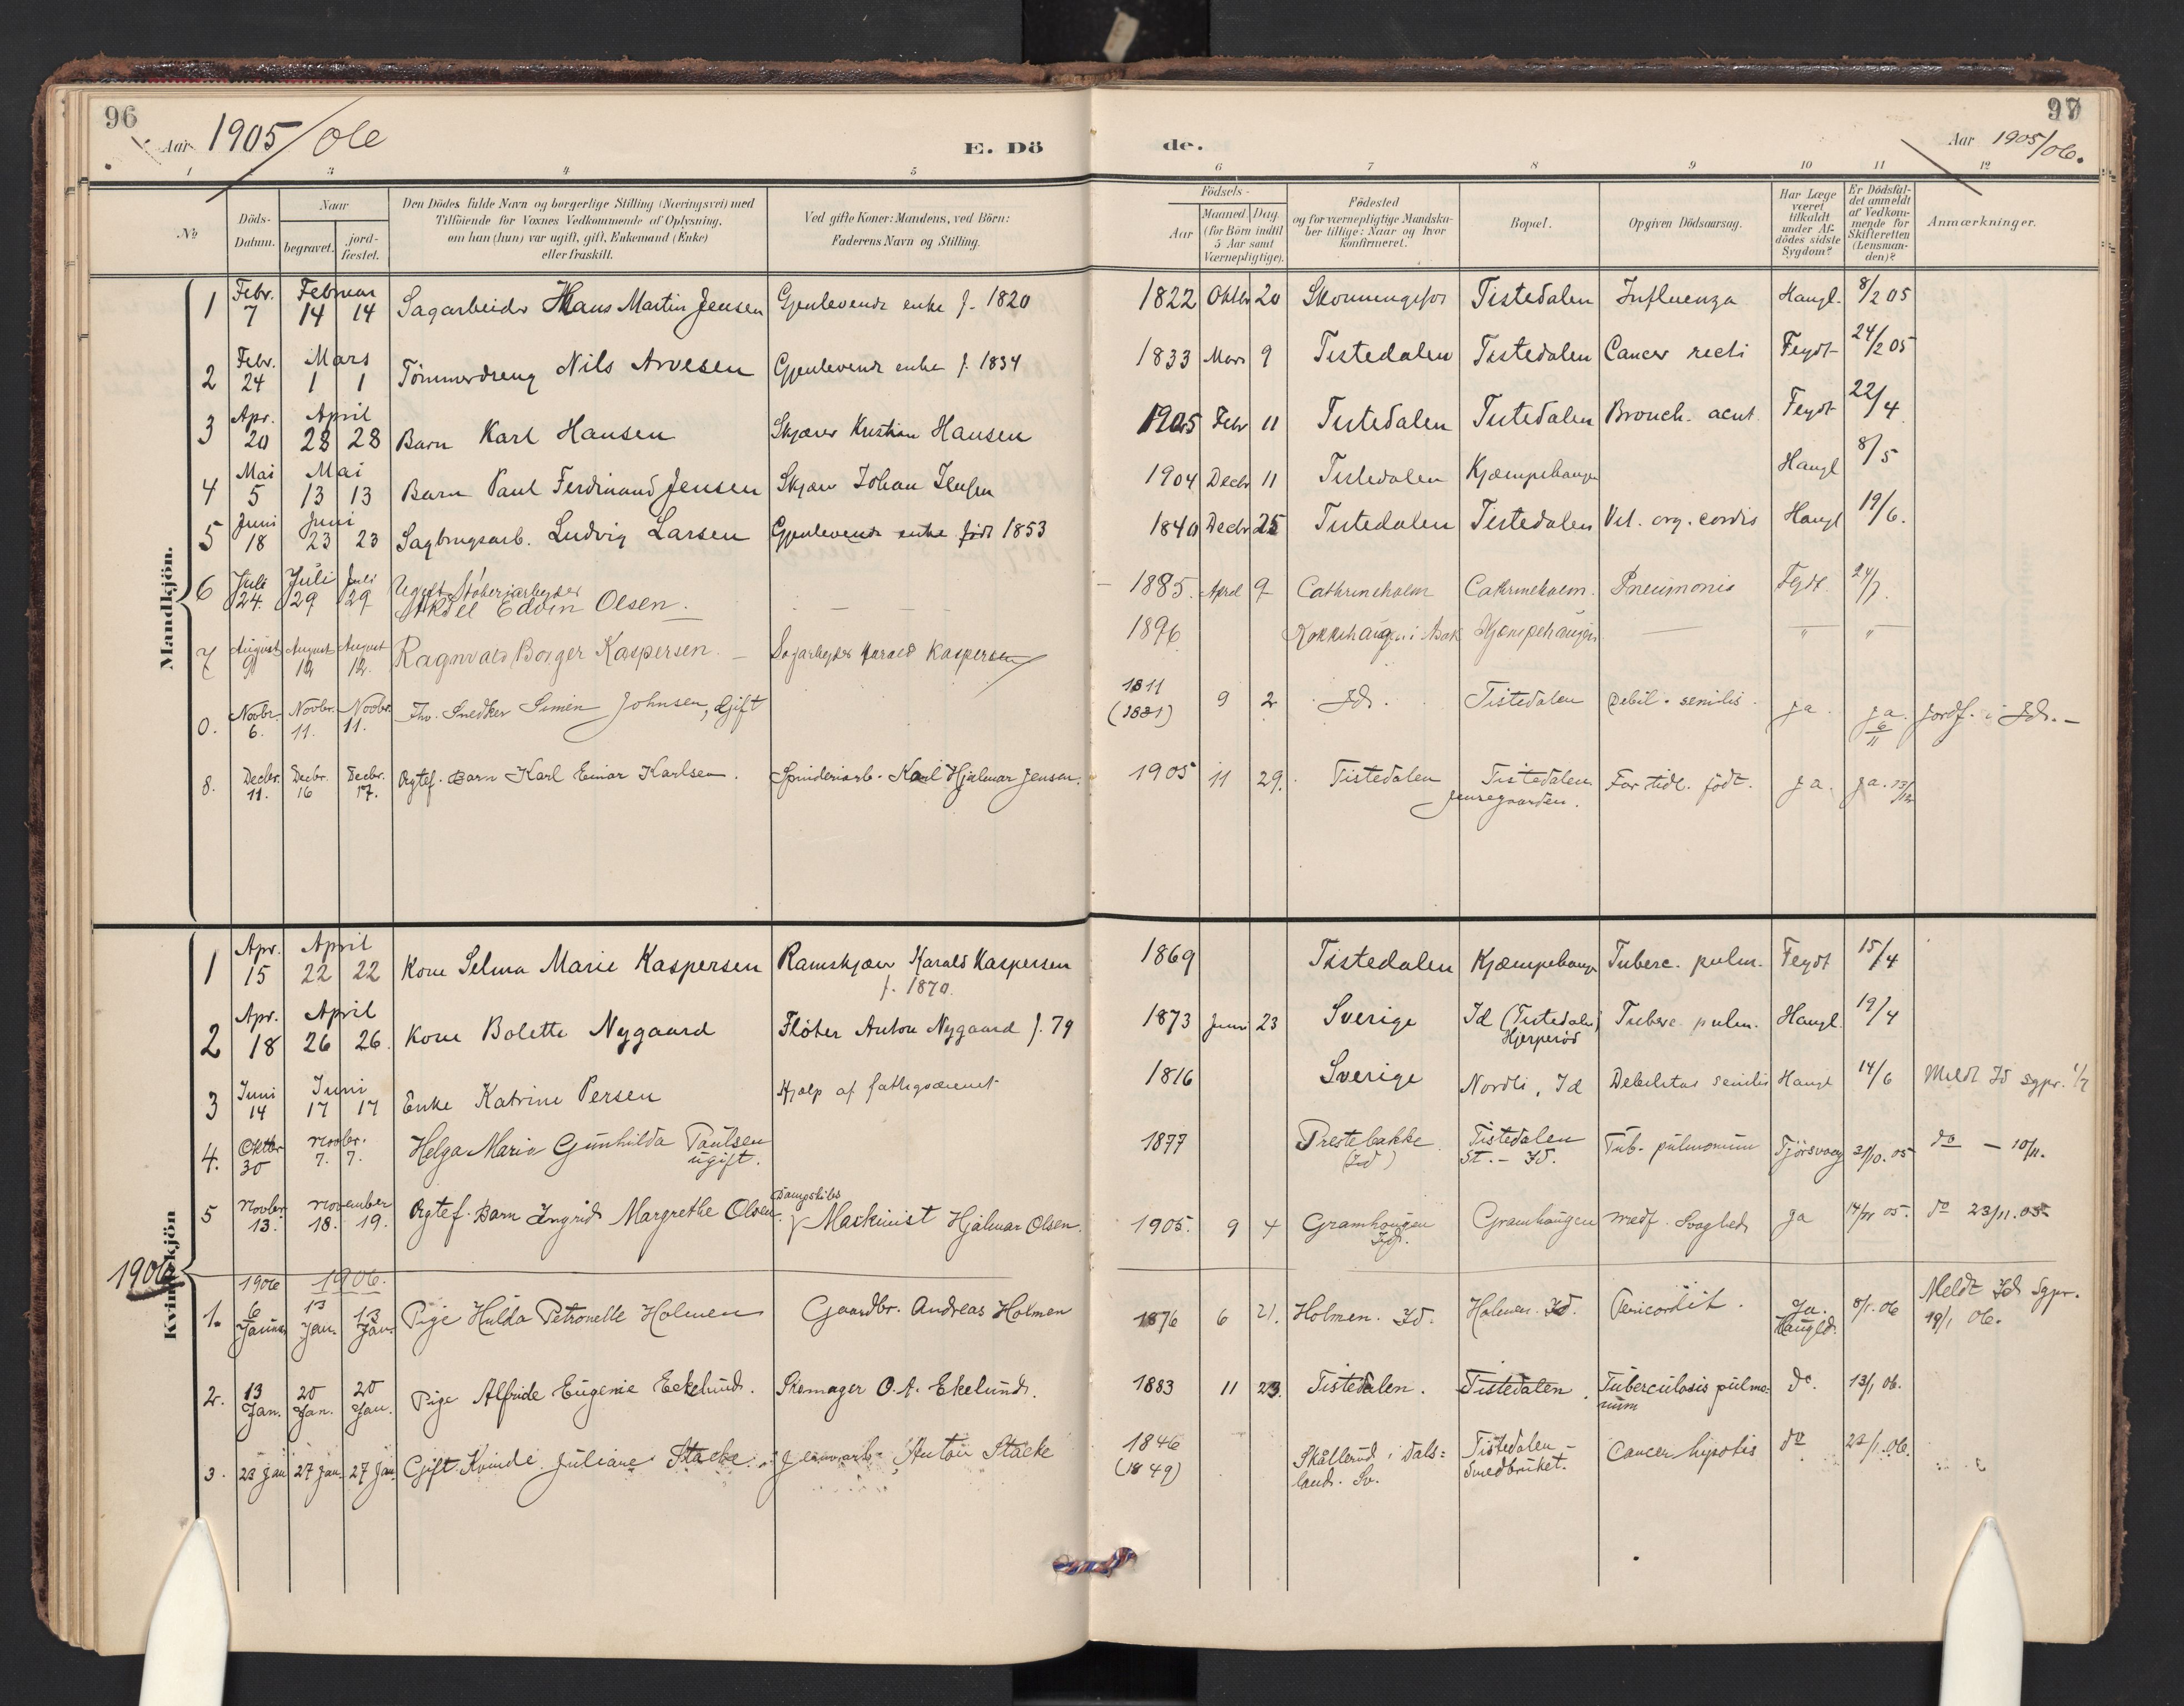 96
Aar 1905/06
E. Dö
de.
Aar 1905/06.
97
1 2 3 4 5 6 7 8 9 10 11 12
No
Döds-
Datum.
Naar
begravet.
jord-
fæstet.
Den Dödes fulde Navn og borgerlige Stilling (Næringsvei) med
Tilföiende for Voxnes Vedkommende af Oplysning,
om han (hun) var ugift, gift, Enkemand (Enke)
eller fraskilt.
Ved gifte Koner: Mandens, ved Börn:
Faderens Navn og Stilling.
Födsels-
Aar
Maaned. Dag
(for Börn indtil
5 Aar samt
Værnepligtige).
Födested
og for værnepligtige Mandska-
ber tillige: Naar og hvor
konfirmeret.
Bopæl.
Opgiven Dödsaarsag.
Har Læge
været
tilkaldt
under Af-
dödes sidste
Sygdom?
Er Dödsfal-
det anmeldt
af Vedkom-
mende for
Skifteretten
(Lensman-
den)?
Anmærkninger.
Mandkjön.
1 Febr. 7 Februar 14 14 Sagarbeider Hans Martin Jensen Gjenlevende enke f. 1820 1822 Oktbr 20 Tistedalen Influenza Haugl. 8/2 05
2 Febr. 24 Mars 1 1 Tömmerdreng Nils Arvesen Gjenlevende enke f. 1834 1833 Mars 9 Tistedalen Tistedalen Cancer recti Feydt 24/2 05
3 Apr. 20 April 28 28 Barn Karl Hansen Skjærer Kristian Hansen 1905 Febr 11 Tistedalen Tistedalen Bronch. acut. Feydt 22/4
4 Mai 5 Mai 13 13 Barn Paul Ferdinand Jensen Skjærer Johan Jensen 1904 Decbr 11 Tistedalen Kjæmpehaugen Haugl 8/5
5 Juni 18 Juni 23 23 Sagbrugsarb. Ludvig Larsen Gjenlevende enke född 1853 1840 Decbr 25 Tistedalen Tistedalen Vit. org. cordis Haugl 19/6.
6 Juli 24. Juli 29 Juli 29 Ugift
Aksel Edvin Olsen. — 1885. April 9 Cathrineholm Cathrineholm. Pneumonia Feydt. 24/7.
7 August 9 August 12 August 12. Ragnvald Borger Kaspersen. — Sagarbeyder Harald Kaspersen 1896 Kjæmpehaugen — " "
0. Novbr. 6. Novbr. 11. Novbr. 11. Fhv. Snedker Simen Johnsen, Gift 1811
(1821) 9 2 Id. Tistedalen Debil. senilis. ja. ja. 6/11 jordf. i Id. —
8. Decbr. 11. Decbr. 16 Decbr. 17. Ægtef. Barn Karl Einar Karlsen. Spinderiarb. Karl Hjalmar Jensen. 1905 11 29. Tistedalen Tistedalen
For tidl. födt. ja. ja. 13/12
Kvindekjön
1 Apr. 15 April 22 22 Kone Selma Marie Kaspersen Ramskjærer Harald Kaspersen
f. 1870. 1869 Tistedalen Kjæmpehaugen Tuberc. pulm. Feydt 15/4
2 Apr. 18 April 26 26. Kone Bolette Nygaard Flöter Anton Nygaard f. 79 1873 Juni 23 Sverige Id (Tistedalen)
Hjerperöd Tuberc. pulm. Haugl. 19/4
3 Juni 14 Juni 17 17 Enke Katrine Persen Hjælp af fattigvæsenet 1816 Sverige Nordli, Id Debilitas senilis Haugl 14/6 Meldt Id Sgpr. 1/7
4. Oktbr 30 Novbr. 7. 7. Helga Maria Gunhilda Paulsen
ugift. 1877 Prestebakke
(Id) Tistedalen
St. — Id. Tub. pulmonum Tjörsvaag 31/10. 05 do — 10/11.
5 Novbr 13. November 18. 19. Ægtef. Barn Ingrid Margrethe Olsen. Dampskibs
Maskinist Hjalmar Olsen. 1905. 9 4 Gramhaugen
Id. Gramhaugen medf. Svaghed ja 14/11 05. do 23/11. 05.
1906
1906 1906.
1. 6 Januar 13 Jan. 13 Jan. Pige Hulda Petronelle Holmen Gaardbr. Andreas Holmen 1876 6 21. Holmen. Id. Holmen. Id. Pericardit. Ja.
Haugld. 8/1. 06 Meldt Id Sgpr.
19/1 06.
2. 13 Jan. 20 Jan. 20 Jan. Pige Alfride Eugenie Eckelund. Skomager O. A. Ekelund. 1883 11 23. Tistedalen. Tistedalen. Tuberculosis pulmo-
num do. 13/1 06.
3. 23 Jan 27 Jan. 27 Jan. Gift Kvinde Juliane Stacke. Anton Stacke 1846
(1849) Skållerud i Dals=
land. Sv. Tistedalen —
Smedbruket. Cancer hepatis do 23/1. 06.